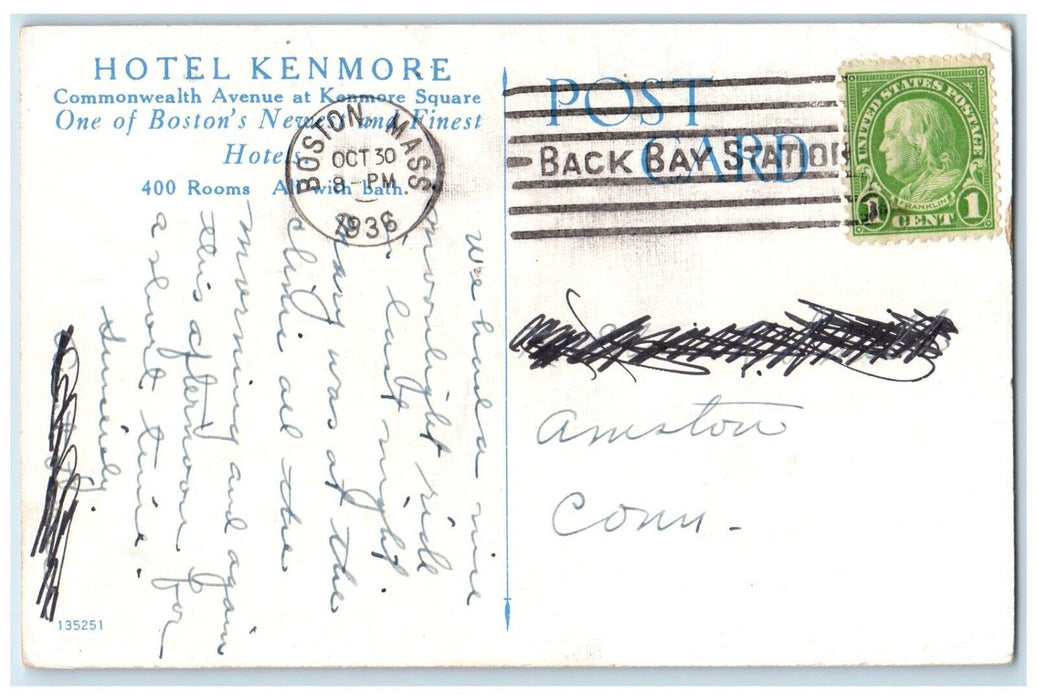 HOTEL KENMORE
Commonwealth Avenue at Kenmore Square
One of Boston's Newest and Finest
Hotels
400 Rooms All with bath.
BOSTON MASS
OCT 30
8-PM
1936
POST
CARD
BACK BAY STATION
UNITED STATES POSTAGE
FRANKLIN
1 CENT 1
We had a nice
moonlight ride
last night.
Mary was at the
clinic all the
morning and again
this afternoon for
a short time.
Sincerely,
Amston
Conn.
135251